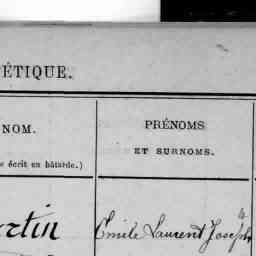 ÉTIQUE.
NOM.
PRÉNOMS
e écrit en bâtarde.)
ET SURNOMS.
rtin
Émile Laurent Joseph